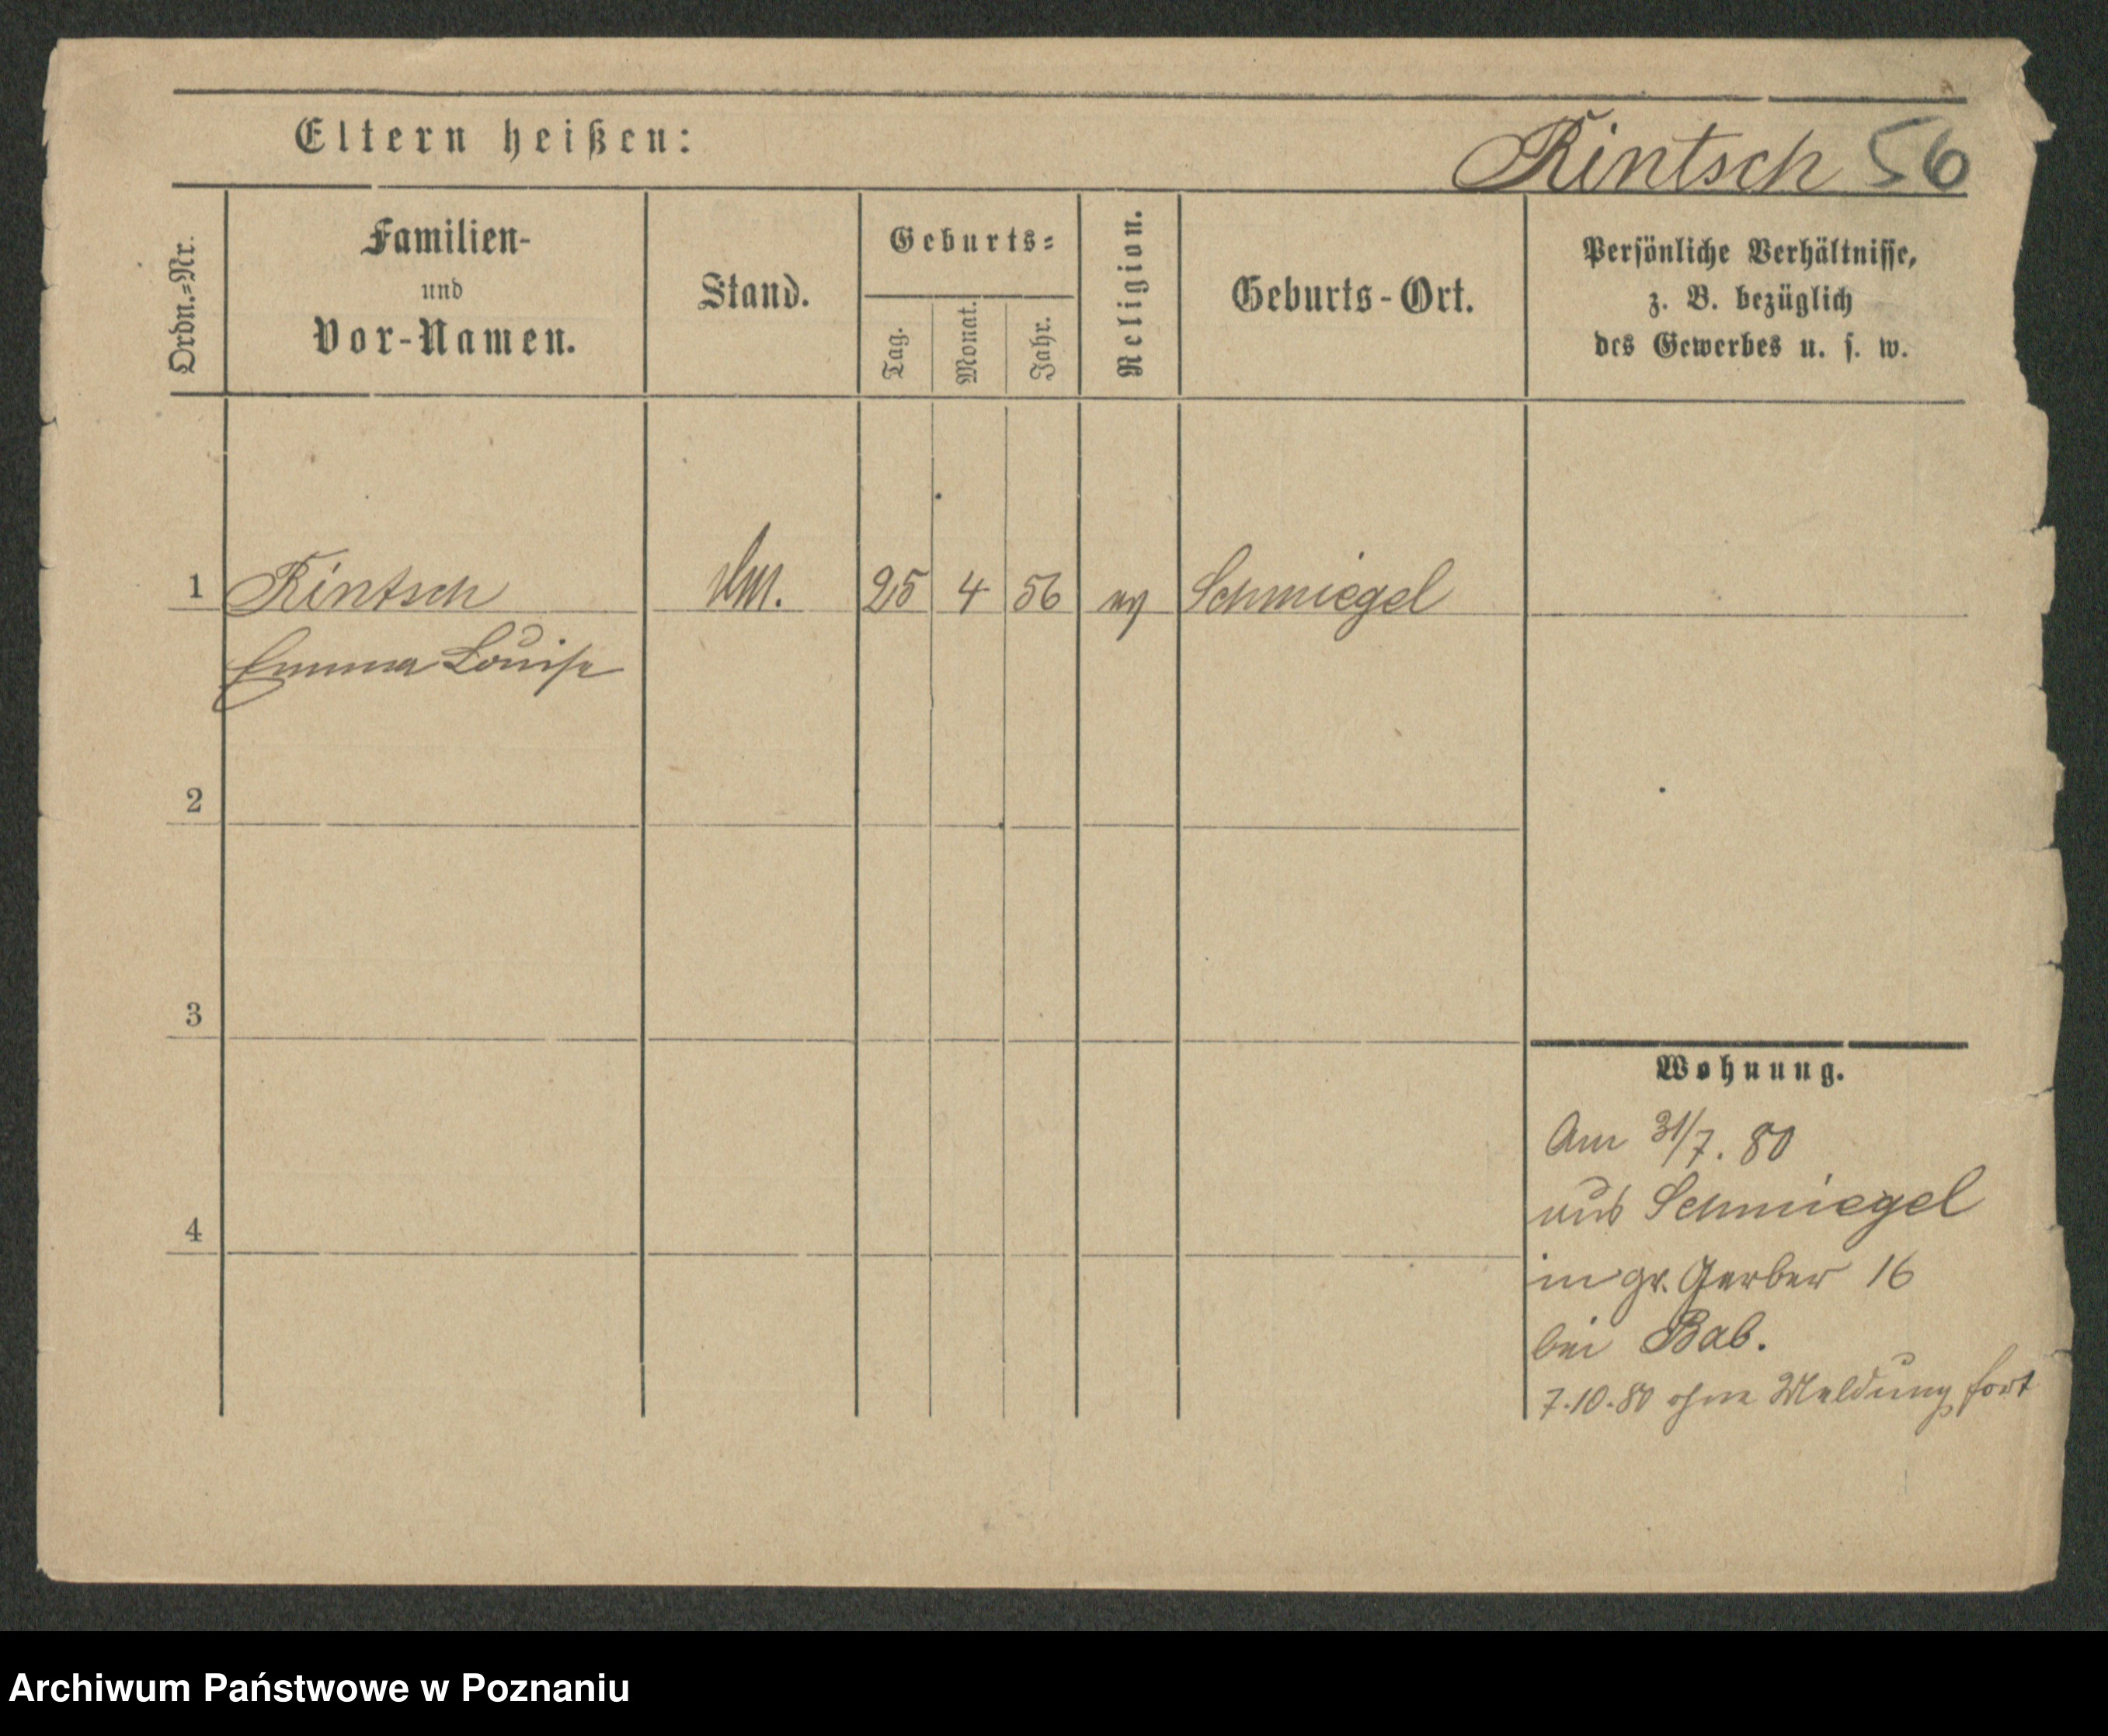 Eltern heißen:
Rintsch 56
Ordn.=Nr.
Familien-
und
Vor-Namen.
Stand.
Geburts=
Tag.
Monat.
Jahr.
Religion.
Geburts-Ort.
Persönliche Verhältnisse,
z. B. bezüglich
des Gewerbes u. s. w.
1 Rintsch 25 4 56 ev Schmiegel
Emma Louise
2
3
4
Wohnung.
Am 31/7. 80
aus Schmiegel
in gr. Gerber 16
bei Bab.
7.10.80 ohne Meldung fort
Archiwum Państwowe w Poznaniu